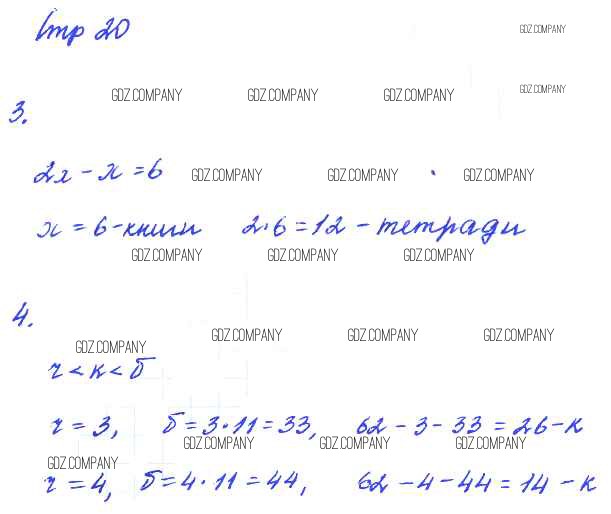 Стр 20
GDZ.COMPANY
GDZ.COMPANY GDZ.COMPANY GDZ.COMPANY GDZ.COMPANY
3.
2x - x = 6 GDZ.COMPANY GDZ.COMPANY GDZ.COMPANY
x = 6 - книги 2·6 = 12 - тетради
GDZ.COMPANY GDZ.COMPANY GDZ.COMPANY
4.
GDZ.COMPANY GDZ.COMPANY GDZ.COMPANY GDZ.COMPANY
ч < к < б
ч = 3, б = 3·11 = 33, 62 - 3 - 33 = 26 - к
GDZ.COMPANY GDZ.COMPANY GDZ.COMPANY
GDZ.COMPANY
ч = 4, б = 4·11 = 44, 62 - 4 - 44 = 14 - к